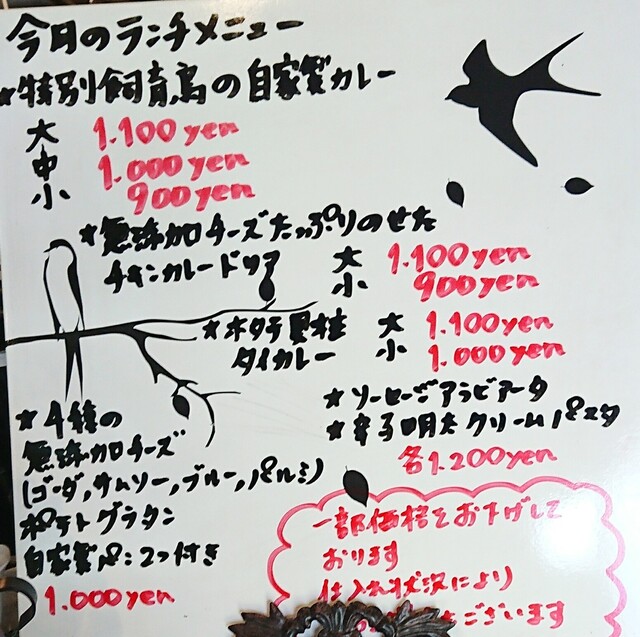 今日のランチメニュー
★特別飼育鳥の自家製カレー
大 1.100yen
中 1.000yen
小 900yen
★無添加チーズたっぷりのせた
チキンカレードリア
大 1.100yen
小 900yen
★ホタテ貝柱
タイカレー
大 1.100yen
小 1.000yen
★ソーセージアラビアータ
★辛子明太クリームパスタ
各1.200yen
★4種の
無添加チーズ
(ゴーダ,サムソー,ブルー,パルミ)
ポテトグラタン
自家製パン2つ付き
1.000yen
一部価格をお下げして
おります
仕入れ状況により
ございます